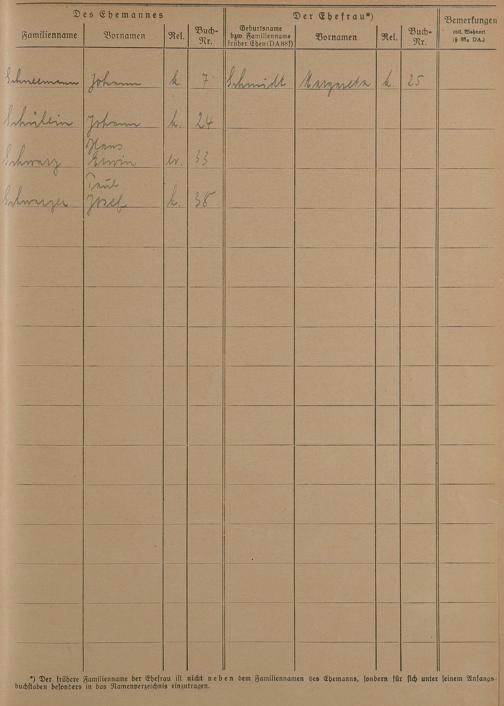 Des Ehemannes
Der Ehefrau*)
Bemerkungen
evtl. Wohnort
Familienname
Vornamen
Rel.
Buch-
Nr.
Geburtsname
bzw. Familienname
früher. Ehen (DA 88 f)
Vornamen
Rel.
Buch-
Nr.
Schneemann Johann k. 7 Schmidt Margareta k. 25
Schüllein Johann k. 24
Hans
Schwarz Erwin ev. 33
Paul
Schwarzer Josef k. 38
*) Der frühere Familienname der Ehefrau ist nicht neben dem Familiennamen des Ehemanns, sondern für sich unter seinem Anfangs-
buchstaben besonders in das Namenverzeichnis einzutragen.